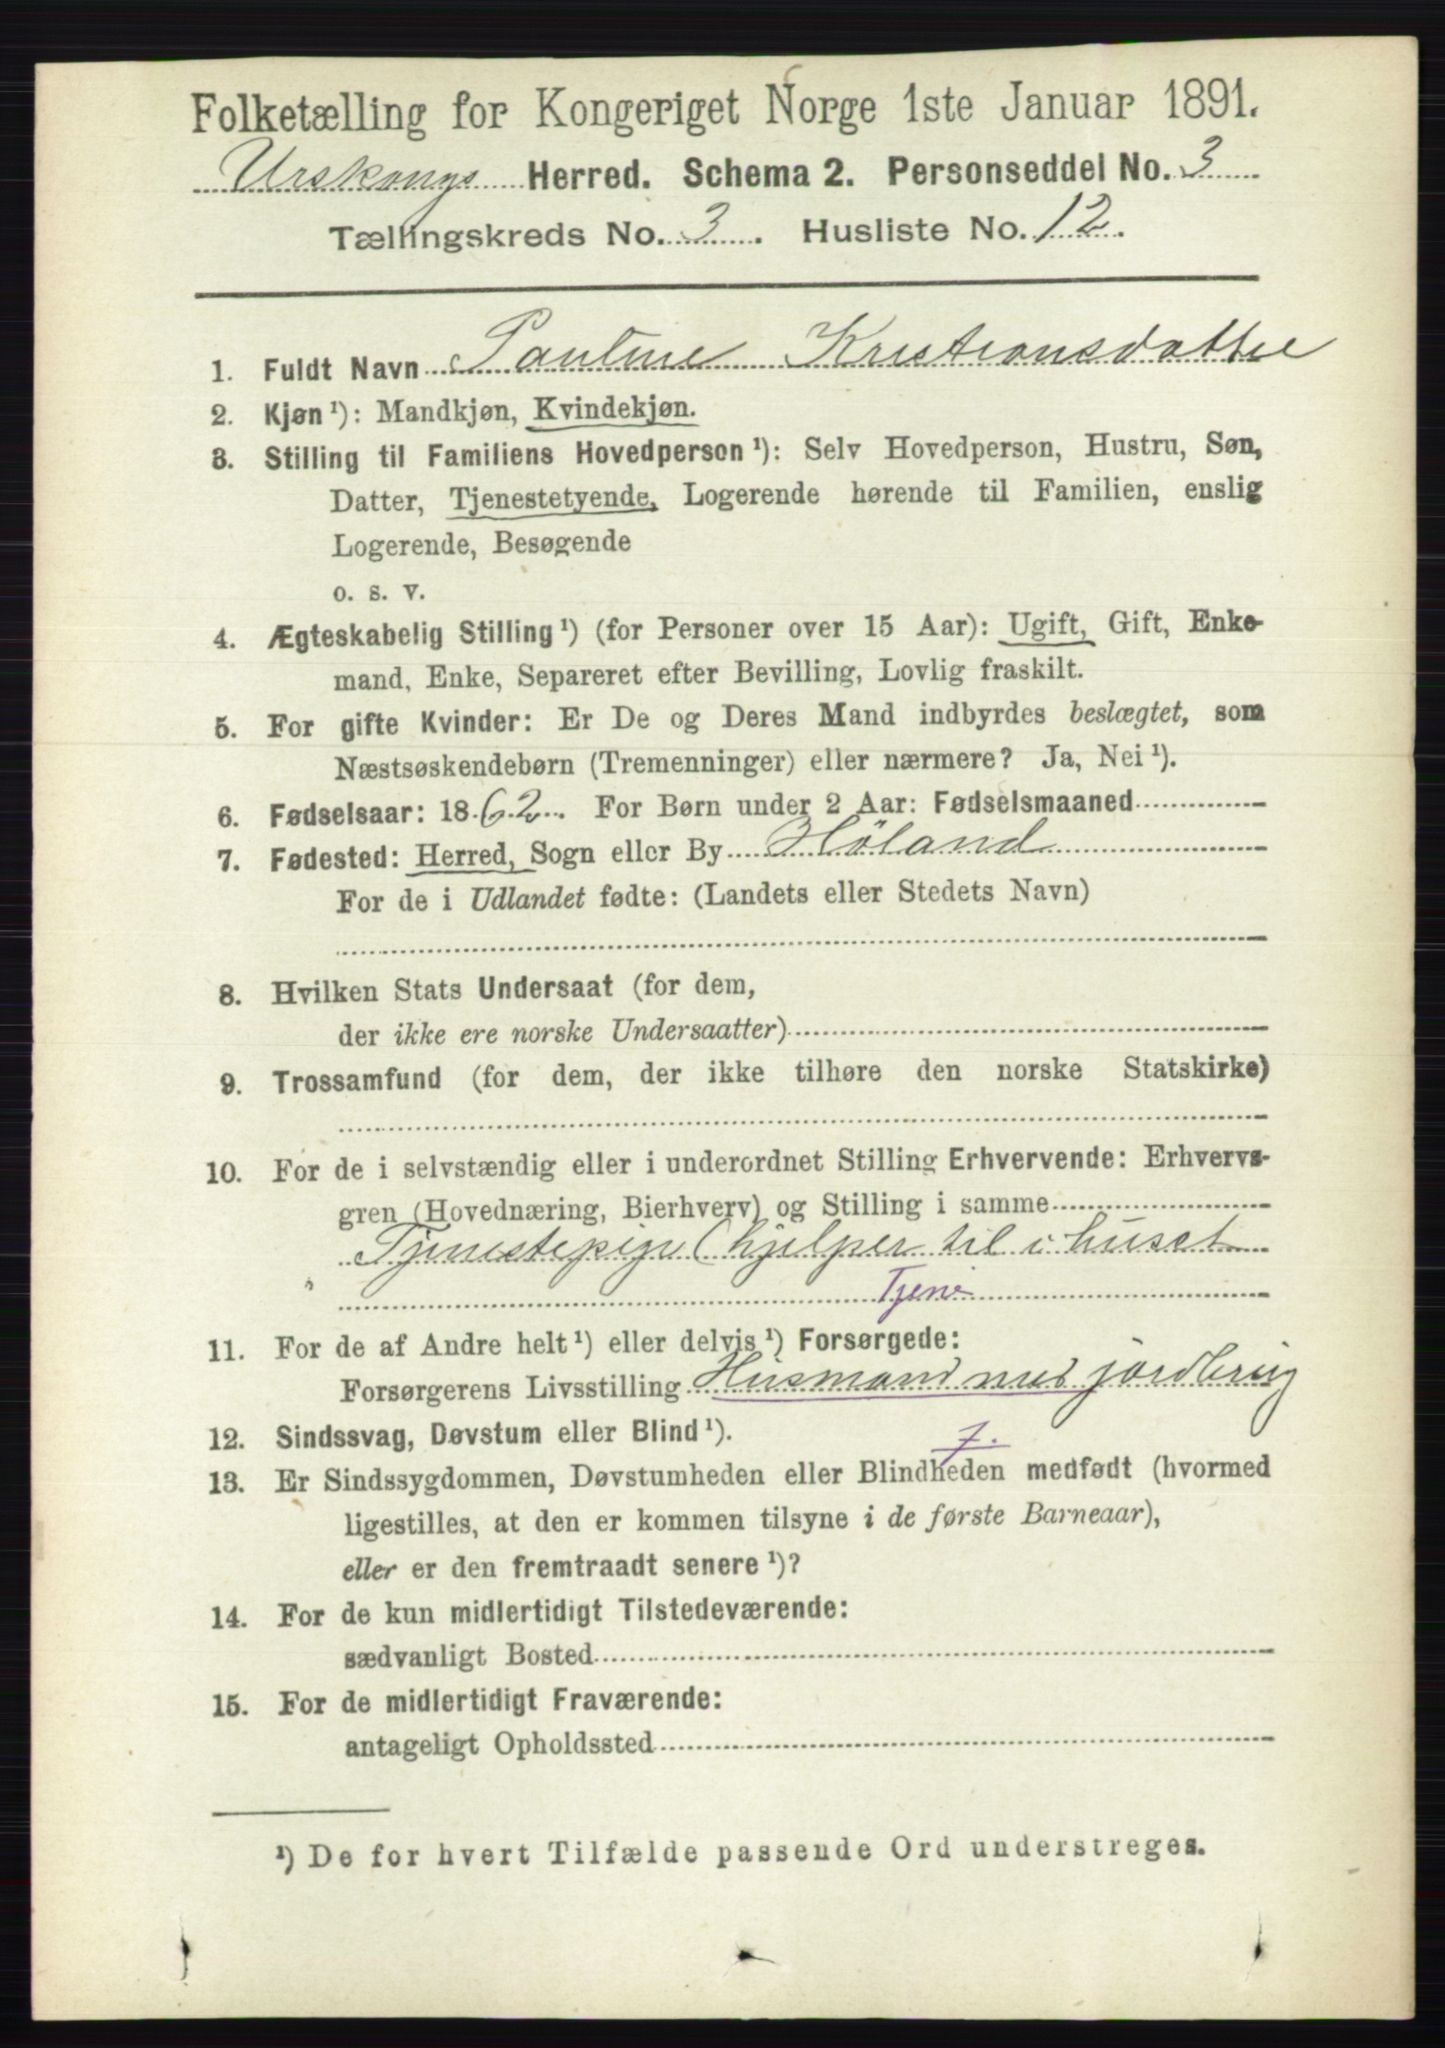 Folketælling for Kongeriget Norge 1ste Januar 1891.
Urskougs Herred. Schema 2. Personseddel No. 3
Tællingskreds No. 3. Husliste No. 12.
1. Fuldt Navn Pauline Kristiansdatter
2. Kjøn ¹): Mandkjøn, Kvindekjøn.
3. Stilling til Familiens Hovedperson ¹): Selv Hovedperson, Hustru, Søn,
Datter, Tjenestetyende, Logerende hørende til Familien, enslig
Logerende, Besøgende
o. s. v.
4. Ægteskabelig Stilling ¹) (for Personer over 15 Aar): Ugift, Gift, Enke-
mand, Enke, Separeret efter Bevilling, Lovlig fraskilt.
5. For gifte Kvinder: Er De og Deres Mand indbyrdes beslægtet, som
Næstsøskendebørn (Tremenninger) eller nærmere? Ja, Nei ¹).
6. Fødselsaar: 1862. For Børn under 2 Aar: Fødselsmaaned
7. Fødested: Herred, Sogn eller By Höland
For de i Udlandet fødte: (Landets eller Stedets Navn)
8. Hvilken Stats Undersaat (for dem,
der ikke ere norske Undersaatter)
9. Trossamfund (for dem, der ikke tilhøre den norske Statskirke)
10. For de i selvstændig eller i underordnet Stilling Erhvervende: Erhvervs-
gren (Hovednæring, Bierhverv) og Stilling i samme
Tjenestepige (hjelper til i huset
Tjene
11. For de af Andre helt ¹) eller delvis ¹) Forsørgede:
Forsørgerens Livsstilling Husmand med jordbrug
7.
12. Sindssvag, Døvstum eller Blind ¹).
13. Er Sindssygdommen, Døvstumheden eller Blindheden medfødt (hvormed
ligestilles, at den er kommen tilsyne i de første Barneaar),
eller er den fremtraadt senere ¹)?
14. For de kun midlertidigt Tilstedeværende:
sædvanligt Bosted
15. For de midlertidigt Fraværende:
antageligt Opholdssted
¹) De for hvert Tilfælde passende Ord understreges.